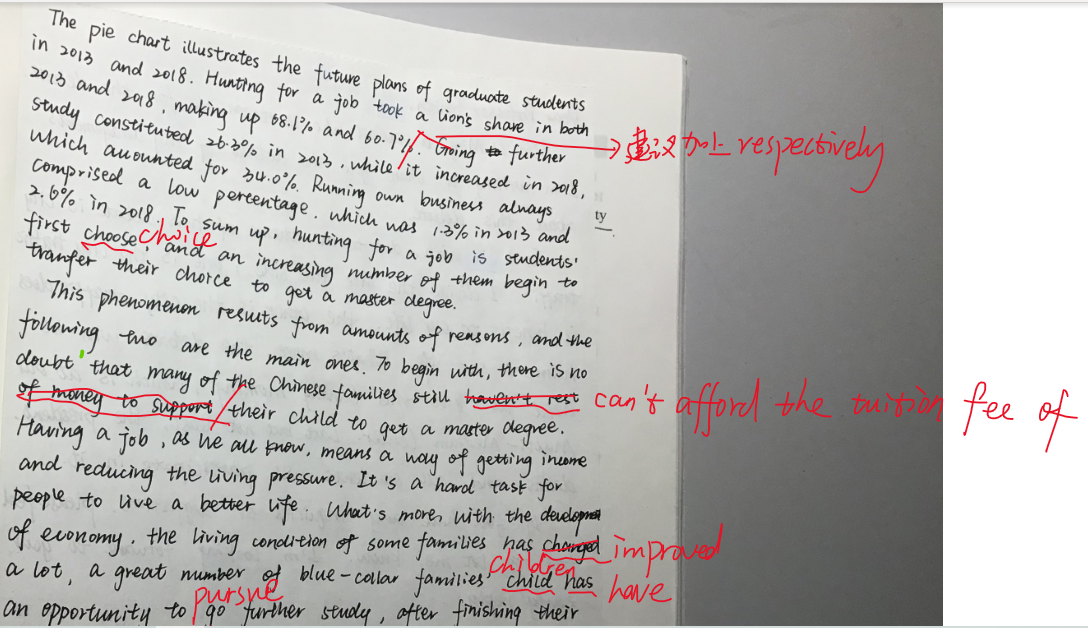 The pie chart illustrates the future plans of graduate students
in 2013 and 2018. Hunting for a job took a lion's share in both
2013 and 2018, making up 68.1% and 60.7%. Going to further
建议加上 respectively
study constituted 26.3% in 2013, while it increased in 2018,
which amounted for 34.0%. Running own business always
comprised a low percentage, which was 1.3% in 2013 and
ty
2.6% in 2018. To sum up, hunting for a job is students'
first choose, and an increasing number of them begin to
choice
tranfer their choice to get a master degree.
This phenomenon results from amounts of reasons, and the
following two are the main ones. To begin with, there is no
doubt that many of the Chinese families still haven't rest
can't afford the tuition fee of
of money to support their child to get a master degree.
Having a job, as we all know, means a way of getting income
and reducing the living pressure. It's a hard task for
people to live a better life. What's more, with the developmen
of economy, the living condition of some families has changed
improved
a lot, a great number of blue-collar families' child has
children have
an opportunity to go further study, after finishing their
pursue